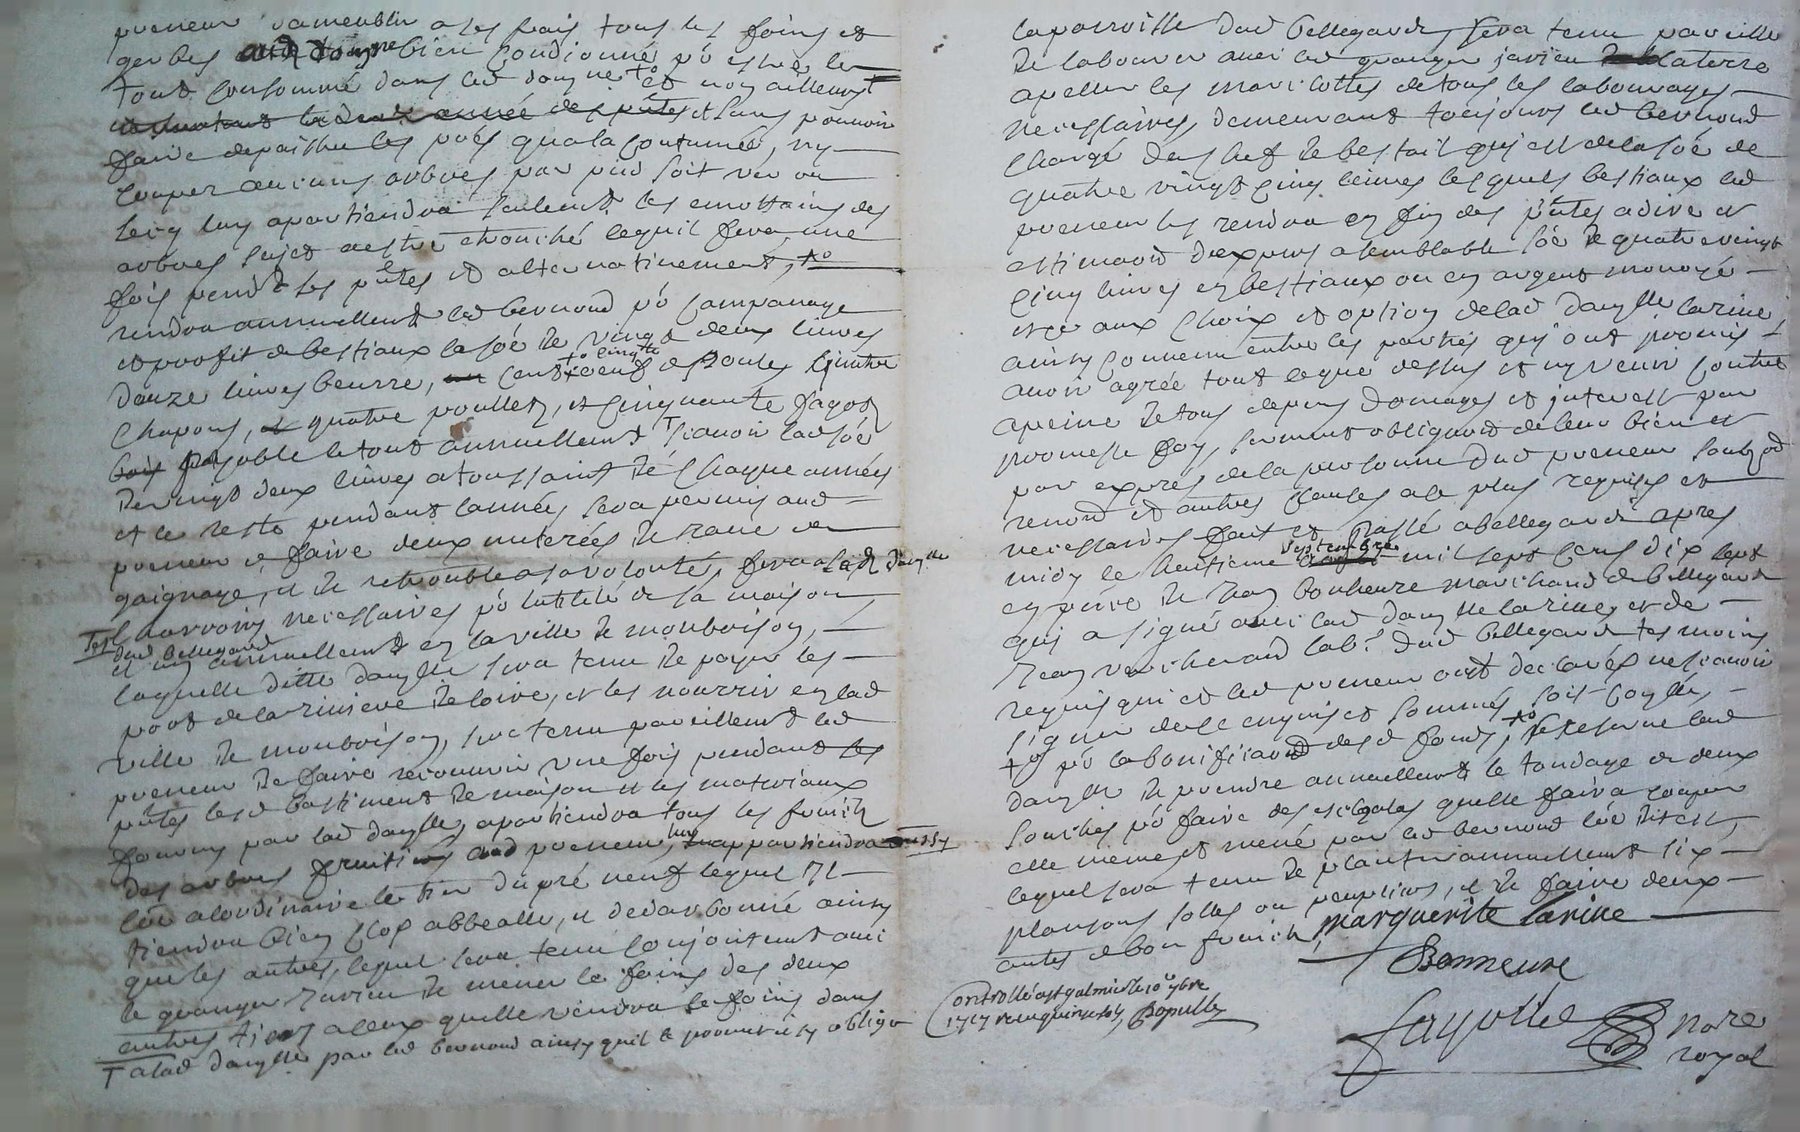 preneur dameublir a ses frais tous les foins et
gerbes aud domyne bien condionné pô estre le
tout consommé dans led domyne et non ailleurs
année des pntes et sans pouvoir
faire depaistre les prés qua la coutumée, ny
couper aucuns arbres par pied soit ver ou
secq luy apartiendra seulemt les emottains des
arbres sujet a estre etronché lequil fera une
fois pendt les pntes et alternativement,
rendra annuellemt led bernond pô campanage
et proffit de bestiaux la soê de vingt deux livres
douze livres beurre, cent oeuf de poules quatre
chapons, quatre poullets, et cinquante fagots
payable le tout annuellemt sçavoir lad soê
de vingt deux livres a toussaint de chaque années
et le reste pendant lannée, sera permis aud
preneur de faire deux meterées de rave en
gaignage, et de retrouble a sa volonté, fera a lad dauylle
charrois necessaires pô lutilité de sa maison
dud bellegard
annuellemt en la ville de monbrison,
laquelle ditte dauylle sera tenu de payer les
port de la riviere de loire, et les nourrir en lad
ville de monbrison, sera tenu pareillemt led
preneur de faire recouvrir une fois pendant les
pntes lesd bastiment de maison et les materiaux
fourny par lad dauylle, apartiendra tous les fruich
des arbres fruitiers aud preneur, luy appartiendra aussy
soê a lordinaire le tier du pré neuf lequel il
tiendra bien clos abbeallé, et dedarbonné ainsy
que les autres, lequel sera tenu conjoitemt avec
le granger javieu de mener le foins des deux
autres tiers a ceux quelle vendra le foins dans
a lad dauylle par led bernond ainsy quil le promet et sy oblige
la parroisse dud bellegard, sera tenu pareille
de labourer avec led granger javieu la terre
apeller les maricottes de tous les labourages
necessaires, demeurant toujours led bernond
chargé des chef de bestail qui est de la soê de
quatre vingt cinq livres lesquels bestiaux led
preneur les rendra en fin des pntes a dire et
estimaon dexpers a semblable soê de quatre vingt
cinq livres en bestiaux ou en argent monoyé
et ce aux choix et option de lad dauylle larine,
ainsy convenu entre les parties qui ont promis
avoir agrée tout ce que dessus et ny venir contre
a peine de tous depens domages et interest par
promesse foy, serment obligaon de leur bien et
par exprés de la personne dud preneur
renond et autres clauses a le plus requises et
necessaires fait et passé a bellegard apres
midy le huitieme septembre mil sept cens dix sept
en pnce de jean bonneure marchand de bellegard
qui a signé avec lad dauylle larine, et de
jean vercherand labr dud bellegard tesmoins
requis qui et led preneur ont declarés ne scavoir
signer de ce enquis et sommés soit conlé,
pô la bonificaon desd fonds, se reserve lad
dauylle de prendre annuellemt le tondage de deux
souches pô faire des quelle faira couper
elle meme et mené par led bernond soê dit est,
lequel sera tenu de planter annuellemt six
plansons solles ou peupliers, et de faire deux
antes de bon fruich, marguerite larine
Bonneure
Controllé a st galmier le 10e 7bre
1717 receu quinze sols Populle
fayolle nore
royal